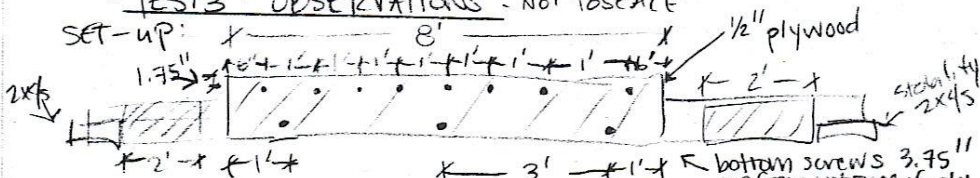 TESTS OBSERVATIONS - NOT TO SCALE
SET-UP: 8' 1/2" plywood
6" 1' 1' 1' 1' 1' 1' 1' 6"
1.75"
2x4s 2' stability
2x4s
2' 1' 3' 1' bottom screws 3.75"